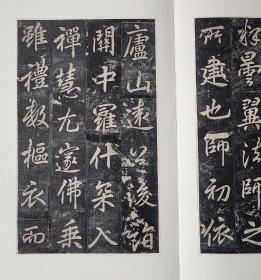 釋曇翼法師之
所建也師初依
廬山遠公後詣
關中羅什架入
禪慧尤邃佛乘
雖禮數摳衣而